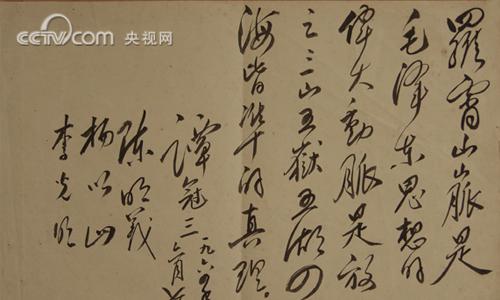 CCTV.com 央视网
羅霄山脈是
毛泽东思想的
偉大動脈是放
之三山五嶽五湖四
海皆準的真理。
譚冠三
陈明義
杨以山
李光明